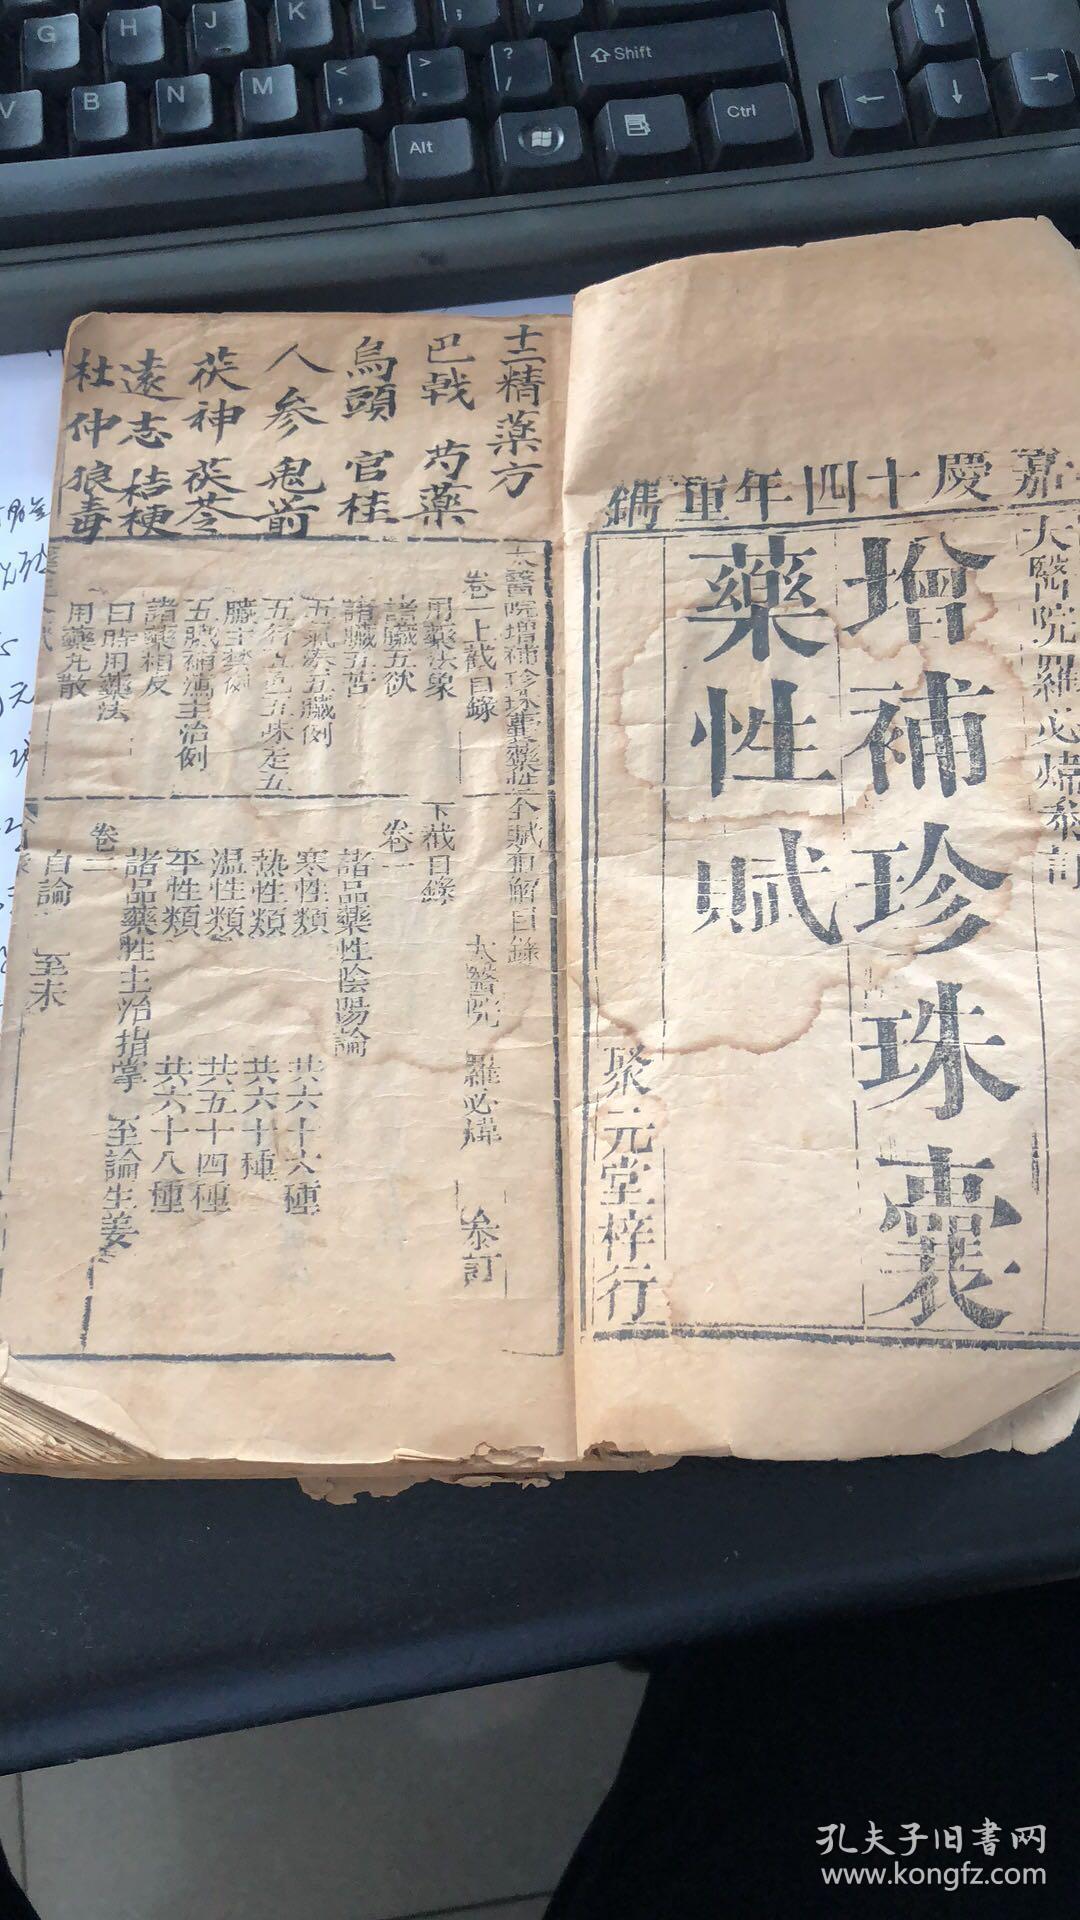 嘉慶十四年重鐫
大醫院羅必煒叅訂
增補珍珠囊
藥性賦
聚元堂梓行
十二精藥方
巴戟 芍藥
烏頭 官桂
人參 鬼箭
茯神 茯苓
遠志 桔梗
杜仲 狼毒
太醫院增補珍珠囊藥性全賦直解目錄
卷一上截目錄
用藥法象
諸臟五欲
諸臟五苦
五氣湊五臟例
五行五色五味走五
臟主禁例
五臟補瀉主治例
諸藥相反
曰時用藥法
用藥丸散
下截目錄 太醫院 羅必煒 叅訂
卷一
諸品藥性陰陽論
寒性類 共六十六種
熱性類 共六十種
温性類 共五十四種
平性類 共六十八種
諸品藥性主治指掌 至論生姜
卷二
自論 至末
G H J K L ; '
V B N M < , > . ? / Shift
Alt Ctrl
孔夫子旧書网
www.kongfz.com